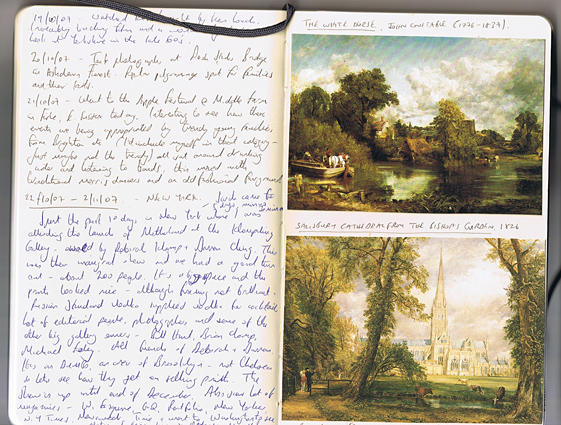 19/10/07 - Watched
look at Yorkshire in the late 60's.
20/10/07 - Took photographs at Pooh Sticks Bridge
in Ashdown Forest. Popular pilgrimage spot for families
and their kids.
21/10/07 - Went to the Apple Festival @ Middle Farm
in Firle, E Sussex today. Interesting to see how these
events are being appropriated by trendy young families
from Brighton etc (I'd include myself in that category -
just maybe not the trendy) all sat around drinking
cider and listening to bands, this mixed with
traditional morris dancers and an old fashioned fairground
22/10/07 - 2/11/07 - NEW YORK.
Spent the past 10 days in New York where I was
attending the launch of Motherland at the Klompching
Gallery - owned by Deborah Klomp + Darren Ching. This
was their inaugural show and we had a good turn
out - about 200 people. It's a big space and the
prints looked nice - although framing not brilliant.
Russian Standard Vodka supplied vodka for cocktails
Lot of editorial people, photographers and some of the
other big gallery owners - Bill Hunt, Brian Clamp,
Michael Foley. All friends of Deborah + Darren.
It's in Dumbo, an area of Brooklyn - not Chelsea
so lets see how they get on selling prints. The
show is up until end of December. Also saw lot of
magazines - W, Esquire, GQ, Portfolio, New Yorker
N.Y Times, Newsweek, Time, + went to Washington to see
THE WHITE HORSE. JOHN CONSTABLE (1776-1837).
SALISBURY CATHEDRAL FROM THE BISHOP'S GARDEN, 1826